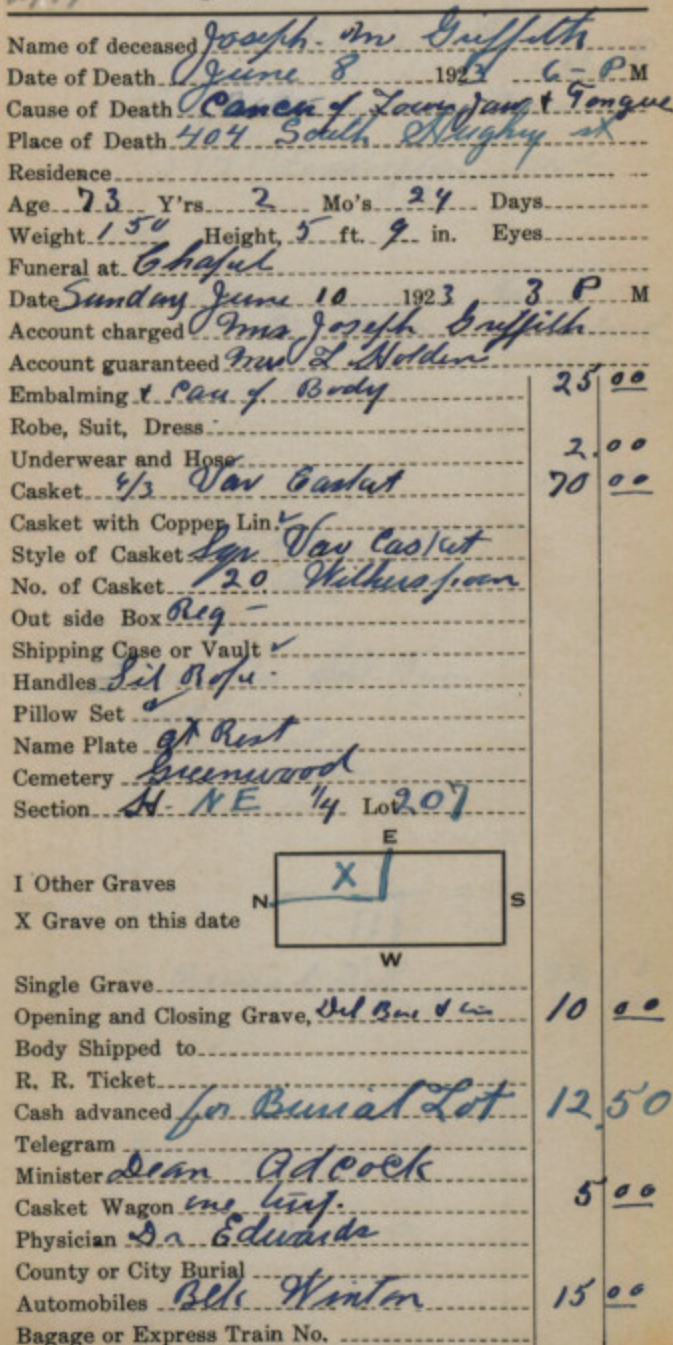 Name of deceased Joseph Wm Griffith
Date of Death June 8 1923 6 - P M
Cause of Death Cancer of Lower Jaw & Tongue
Place of Death 404 South Hughey st
Residence
Age 73 Y'rs 2 Mo's 24 Days
Weight 150 Height, 5 ft. 9 in. Eyes
Funeral at Chapel
Date Sunday June 10 1923 3 P M
Account charged Mrs Joseph Griffith
Account guaranteed Mrs L Holden
Embalming & Care of Body 25 00
Robe, Suit, Dress
Underwear and Hose 2.00
Casket 6/3 Var Casket 70 00
Casket with Copper Lin. ✓
Style of Casket Sqr Var Casket
No. of Casket 20 Witherspoon
Out side Box Reg -
Shipping Case or Vault ✓
Handles Sil Rope
Pillow Set ✓
Name Plate at Rest
Cemetery Greenwood
Section H - NE 1/4 Lot 207
E
I Other Graves
N X S
X Grave on this date
W
Single Grave
Opening and Closing Grave, Del Box & 10 00
Body Shipped to
R. R. Ticket
Cash advanced for Burial Lot 12.50
Telegram
Minister Dean Adcock
Casket Wagon 5 00
Physician Dr Edwards
County or City Burial
Automobiles Belk Winton 15 00
Bagage or Express Train No.